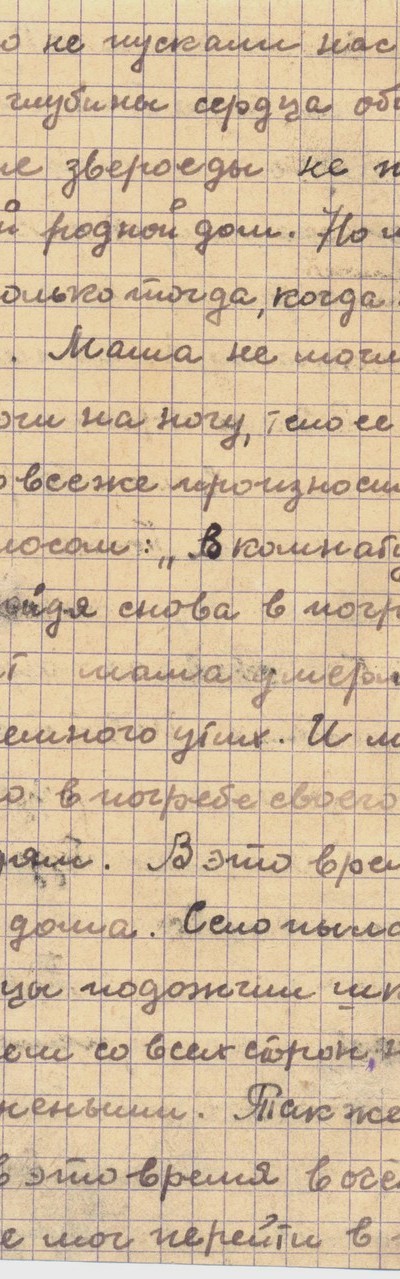 о не пускали нас
глубины сердца
звероеды не
й родной дом. Но
олько тогда, когда
. Мама не могл
очи на ногу, тело ее
о все же произноси
лосом: „В комнату
ойдя снова в погр
т мама умерл
емного утих. И м
о в погребе своего
рям. В это врем
дома. Село пыла
цы подожгли шк
ем со всех сторон,
неными. Так же
в это время в осе
е мог перейти в